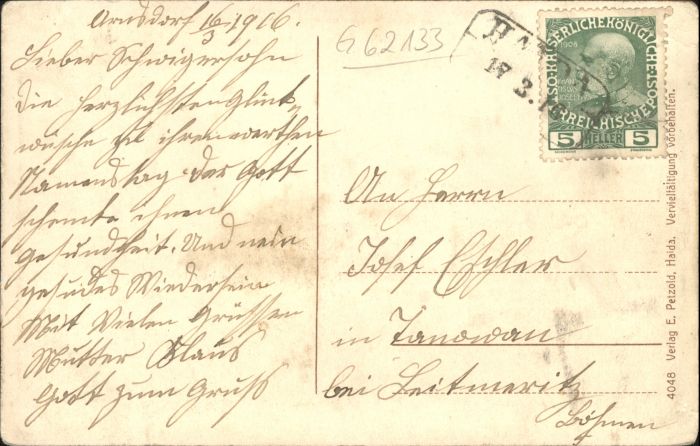 Arnsdorf 16/3 1916.
Lieber Schwigersohn
die herzlichsten Glück
wüsche zu ihren werthen
Namenstag der Gott
schenke ihnen
gesundheit. Und nein
gesudes Wiedersein
Mit Vielen Grüssen
Mutter Klaus
Gott zum Gruss
G 62133
HAIDA
17 3. 16
KAISERLICHE KÖNIGLICHE
ÖSTERREICHISCHE POST
1908
5 HELLER 5
An Herrn
Josef Eschler
in
bei Leitmeritz
Böhmen
4048 Verlag E. Petzold, Haida. Vervielfältigung vorbehalten.